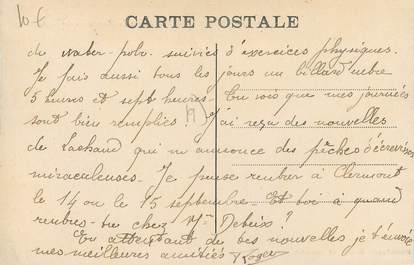 10 €
CARTE POSTALE
de water-polo suivies d'exercices physiques.
Je fais aussi tous les jours un billard entre
5 heures et sept heures. Tu vois que mes journées
sont bien remplies ! J'ai reçu des nouvelles
de Lachaud qui m'annonce des pêches d'écrevisses
miraculeuses. Je pense rentrer à Clermont
le 14 ou le 15 septembre. Et toi à quand
rentres-tu chez Mr Debeix ?
En attendant de tes nouvelles je t'envoie
mes meilleures amitiés Roger